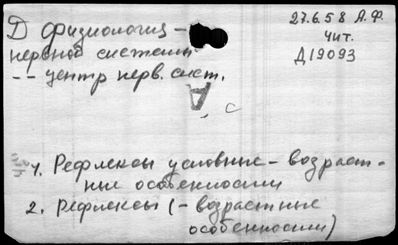 Д физиология –
нервной системы
-- центр нерв. сист.
27.6.58 А.Ф.
Чит.
Д19093
А, с
1. Рефлексы условные – возраст-
ные особенности
2. Рефлексы (– возрастные
особенности)